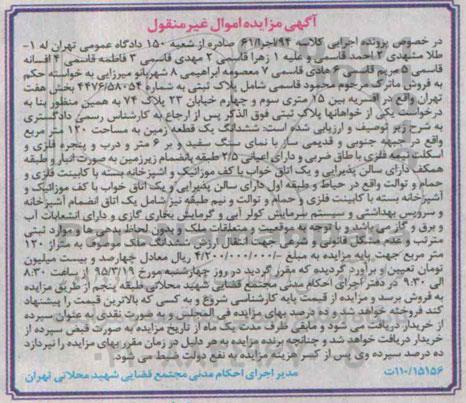 آگهی مزایده اموال غیرمنقول
در خصوص پرونده اجرایی کلاسه ۹۴/اجرا/۶۱ صادره از شعبه ۱۵۰ دادگاه عمومی تهران له ۱-
طلا مشهدی ۲ احمد قاسمی و علیه ۱ زهرا قاسمی ۲ مهدی قاسمی ۳ فاطمه قاسمی ۴ افسانه
قاسمی ۵ مریم قاسمی ۶ هادی قاسمی ۷ معصومه ابراهیمی ۸ شهربانو میرزایی به خواسته حکم
به فروش ماترک مرحوم محمود قاسمی شامل پلاک ثبتی به شماره ۴۴۷۶/۵۸۰۵۴ بخش هفت
تهران واقع در افسریه بین ۱۵ متری سوم و چهارم خیابان ۲۳ پلاک ۷۴ به همین منظور بنا به
درخواست یکی از خواهانها پلاک ثبتی فوق الذکر پس از ارجاع به کارشناس رسمی دادگستری
به شرح زیر توصیف و ارزیابی شده است: ششدانگ یک قطعه زمین به مساحت ۱۲۰ متر مربع
واقع در جبهه جنوبی و قدیمی ساز با نمای سنگ سفید و بر ۶ متر و درب و پنجره فلزی و
اسکلت نیمه فلزی با طاق ضربی و دارای اعیانی ۲/۵ طبقه بانضمام زیرزمین به صورت انبار و طبقه
همکف دارای سالن پذیرایی و یک اتاق خواب با کف موزائیک و اشپزخانه بسته با کابینت فلزی و
حمام و توالت واقع در حیاط و طبقه اول دارای سالن پذیرایی و یک اتاق خواب با کف موزائیک و
آشپزخانه بسته با کابینت فلزی و حمام و توالت و نیم طبقه نیز شامل یک اتاق انضمام آشپزخانه
و سرویس بهداشتی و سیستم سرمایش کولر آبی و گرمایش بخاری گازی و دارای انشعابات آب
و برق و گاز می باشد و با توجه به موقعیت و متعلقات ملک و بدون لحاظ بدهی ها و موارد ثبتی
مترتب و عدم مشکل قانونی و شرعی جهت انتقال ارزش ششدانگ ملک موصوف به متراژ ۱۲۰
متر مربع جهت پایه مزایده به مبلغ ۴/۲۰۰/۰۰۰/۰۰۰/- ریال معادل چهارصد و بیست میلیون
تومان تعیین و برآورد گردیده که مقرر گردید در روز چهارشنبه مورخ ۹۵/۳/۱۹ از ساعت ۸:۳۰
الی ۹:۳۰ در دفتر اجرای احکام مدنی مجتمع قضایی شهید محلاتی طبقه پنجم از طریق مزایده
به فروش برسد و مزایده از قیمت پایه کارشناسی شروع و به کسی که بالاترین قیمت را پیشنهاد
کند فروخته خواهد شد و ده درصد بهای مزایده فی المجلس و به صورت نقدی به عنوان سپرده
از خریدار دریافت می شود و مابقی ظرف مدت یک ماه از تاریخ مزایده به صورت قبض سپرده از
خریدار دریافت خواهد شد و چنانچه برنده مزایده به هر دلیل در زمان مقرر بهای مزایده را نپردازد
ده درصد سپرده وی پس از کسر هزینه مزایده به نفع دولت ضبط می شود.
۱۱۰/۱۵۱۵۶ت مدیر اجرای احکام مدنی مجتمع قضایی شهید محلاتی تهران